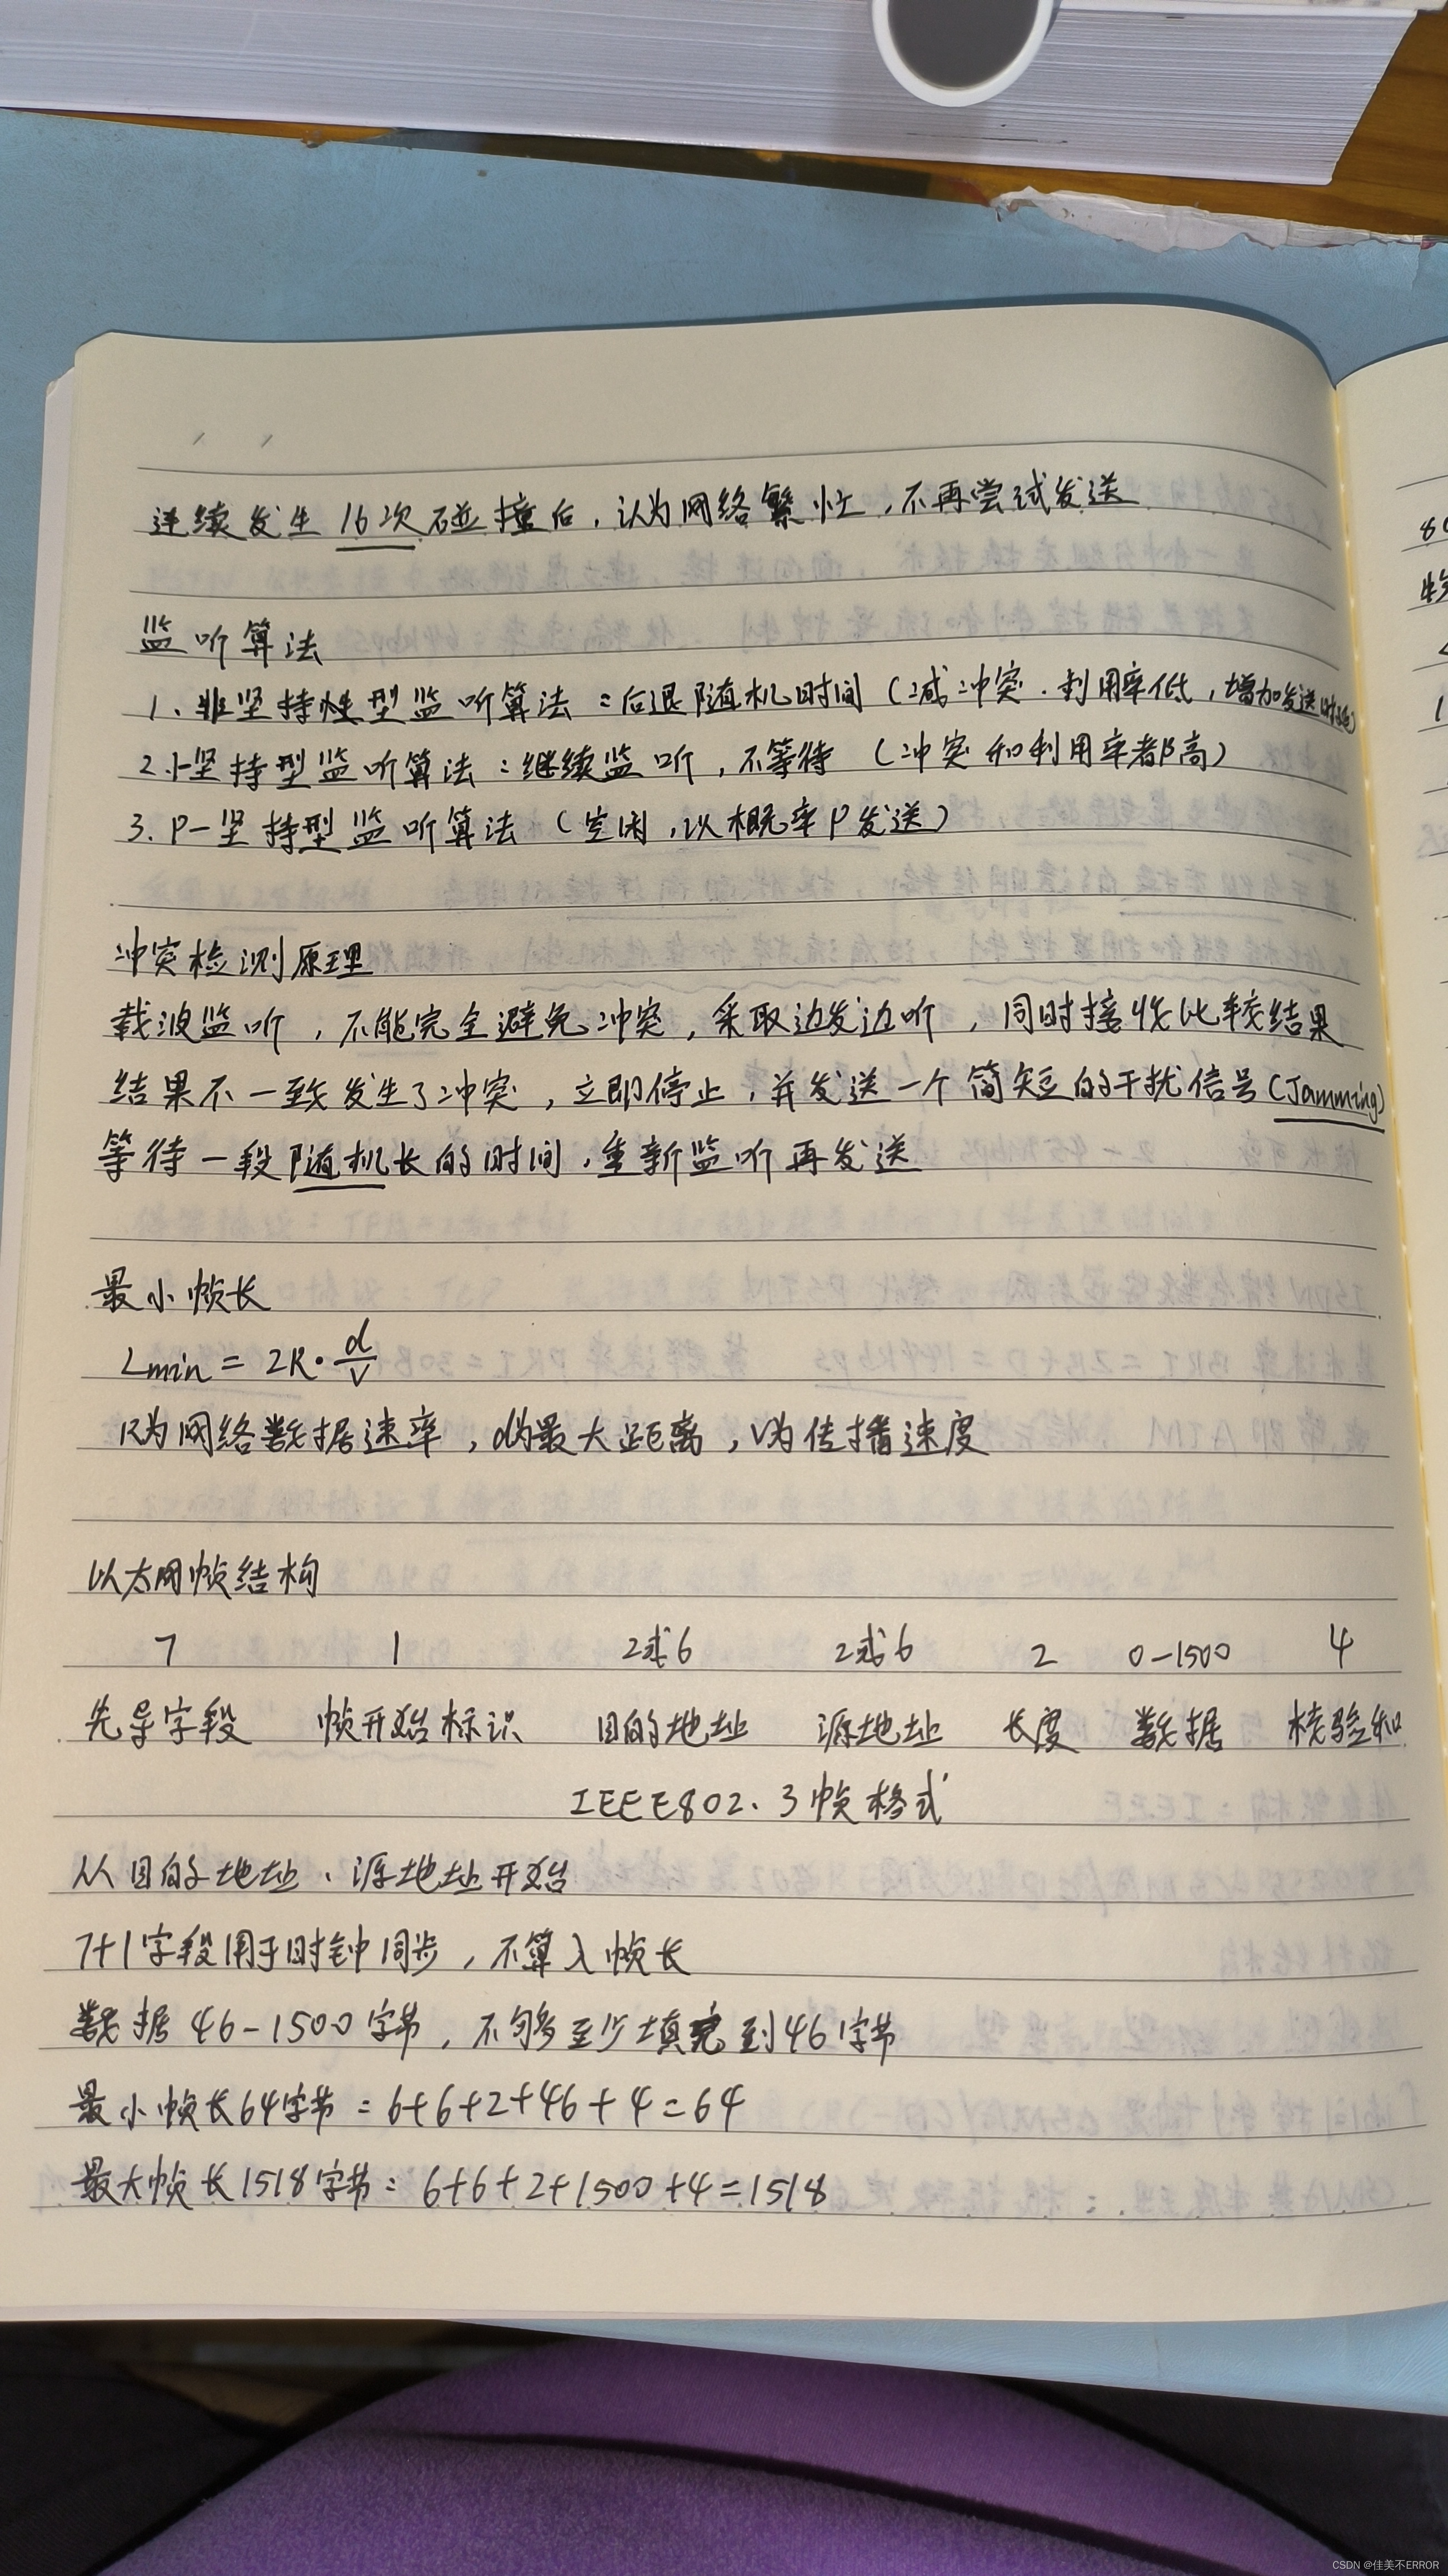 连续发生 16次 碰撞后，认为网络繁忙，不再尝试发送
监听算法
1、非坚持性型监听算法：后退随机时间（减冲突.利用率低，增加发送时延）
2.1-坚持型监听算法：继续监听，不等待（冲突和利用率都高）
3.P-坚持型监听算法（空闲，以概率P发送）
冲突检测原理
载波监听，不能完全避免冲突，采取边发边听，同时接收比较结果
结果不一致发生了冲突，立即停止，并发送一个简短的干扰信号(Jamming)
等待一段随机长的时间，重新监听再发送
最小帧长
Lmin = 2R·d/v
R为网络数据速率，d为最大距离，v为传播速度
以太网帧结构
7 1 2或6 2或6 2 0-1500 4
先导字段 帧开始标识 目的地址 源地址 长度 数据 校验和
IEEE802.3帧格式
从目的地址、源地址开始
7+1字段用于时钟同步，不算入帧长
数据46-1500字节，不够至少填充到46字节
最小帧长64字节：6+6+2+46+4=64
最大帧长1518字节：6+6+2+1500+4=1518
CSDN @佳美不ERROR